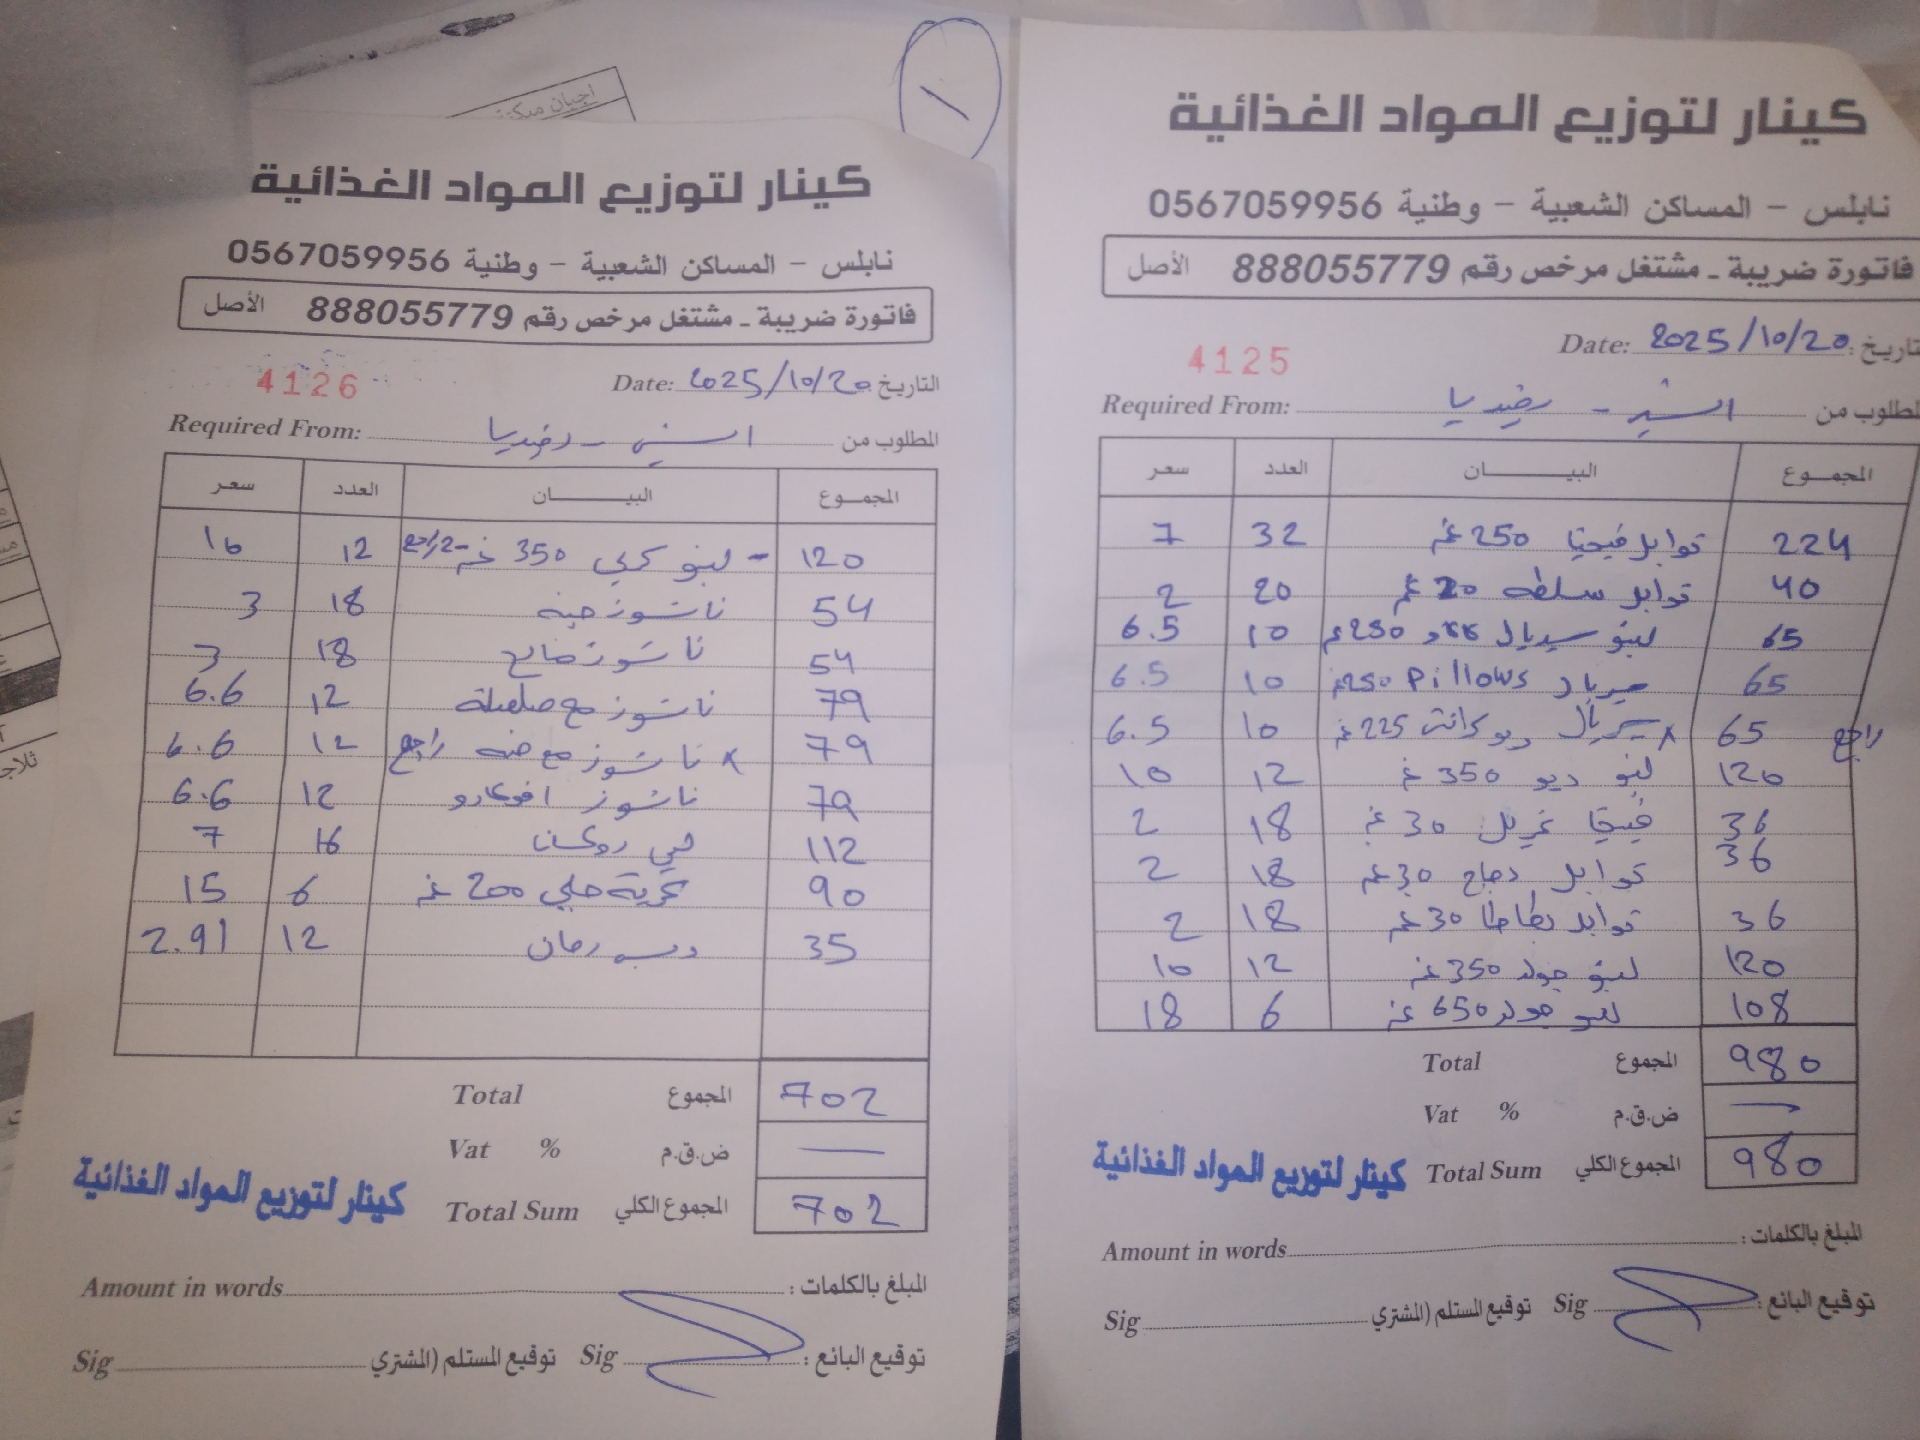 كينار لتوزيع المواد الغذائية
نابلس - المساكن الشعبية - وطنية 0567059956
فاتورة ضريبة - مشتغل مرخص رقم 888055779 الأصل
التاريخ Date: 2025/10/20
4125
المطلوب من Required From: رفيديا
المجموع البيان العدد سعر
224 توابل فيجيتا 250 غم 32 7
40 توابل سلطه 20 غم 20 2
65 لينو سيريال 250 غم 10 6.5
65 سيريال Pillows 250 غم 10 6.5
راجع 65 x سيريال ديو 225 غم 10 6.5
120 لينو ديو 350 غم 12 10
36 فيجيتا غريل 30 غم 18 2
36 توابل دجاج 30 غم 18 2
36 توابل بطاطا 30 غم 18 2
120 لينو جولد 350 غم 12 10
108 لينو جولد 650 غم 6 18
Total المجموع 980
Vat % ض.ق.م —
Total Sum المجموع الكلي 980
كينار لتوزيع المواد الغذائية
Amount in words المبلغ بالكلمات :
Sig توقيع المستلم (المشتري Sig توقيع البائع :
كينار لتوزيع المواد الغذائية
نابلس - المساكن الشعبية - وطنية 0567059956
فاتورة ضريبة - مشتغل مرخص رقم 888055779 الأصل
التاريخ Date: 2025/10/20
4126
المطلوب من Required From: رفيديا
المجموع البيان العدد سعر
120 - لينو 350 غم -2 راجع 12 10
54 ناتشوز جبنه 18 3
54 ناتشوز مالح 18 3
79 ناتشوز مع صلصلة 12 6.6
79 x ناتشوز مع راجع 12 6.6
79 ناتشوز افوكادو 12 6.6
112 16 7
90 حلبي 200 غم 6 15
35 دبس رمان 12 2.91
Total المجموع 702
Vat % ض.ق.م —
Total Sum المجموع الكلي 702
كينار لتوزيع المواد الغذائية
Amount in words المبلغ بالكلمات :
Sig توقيع المستلم (المشتري Sig توقيع البائع :